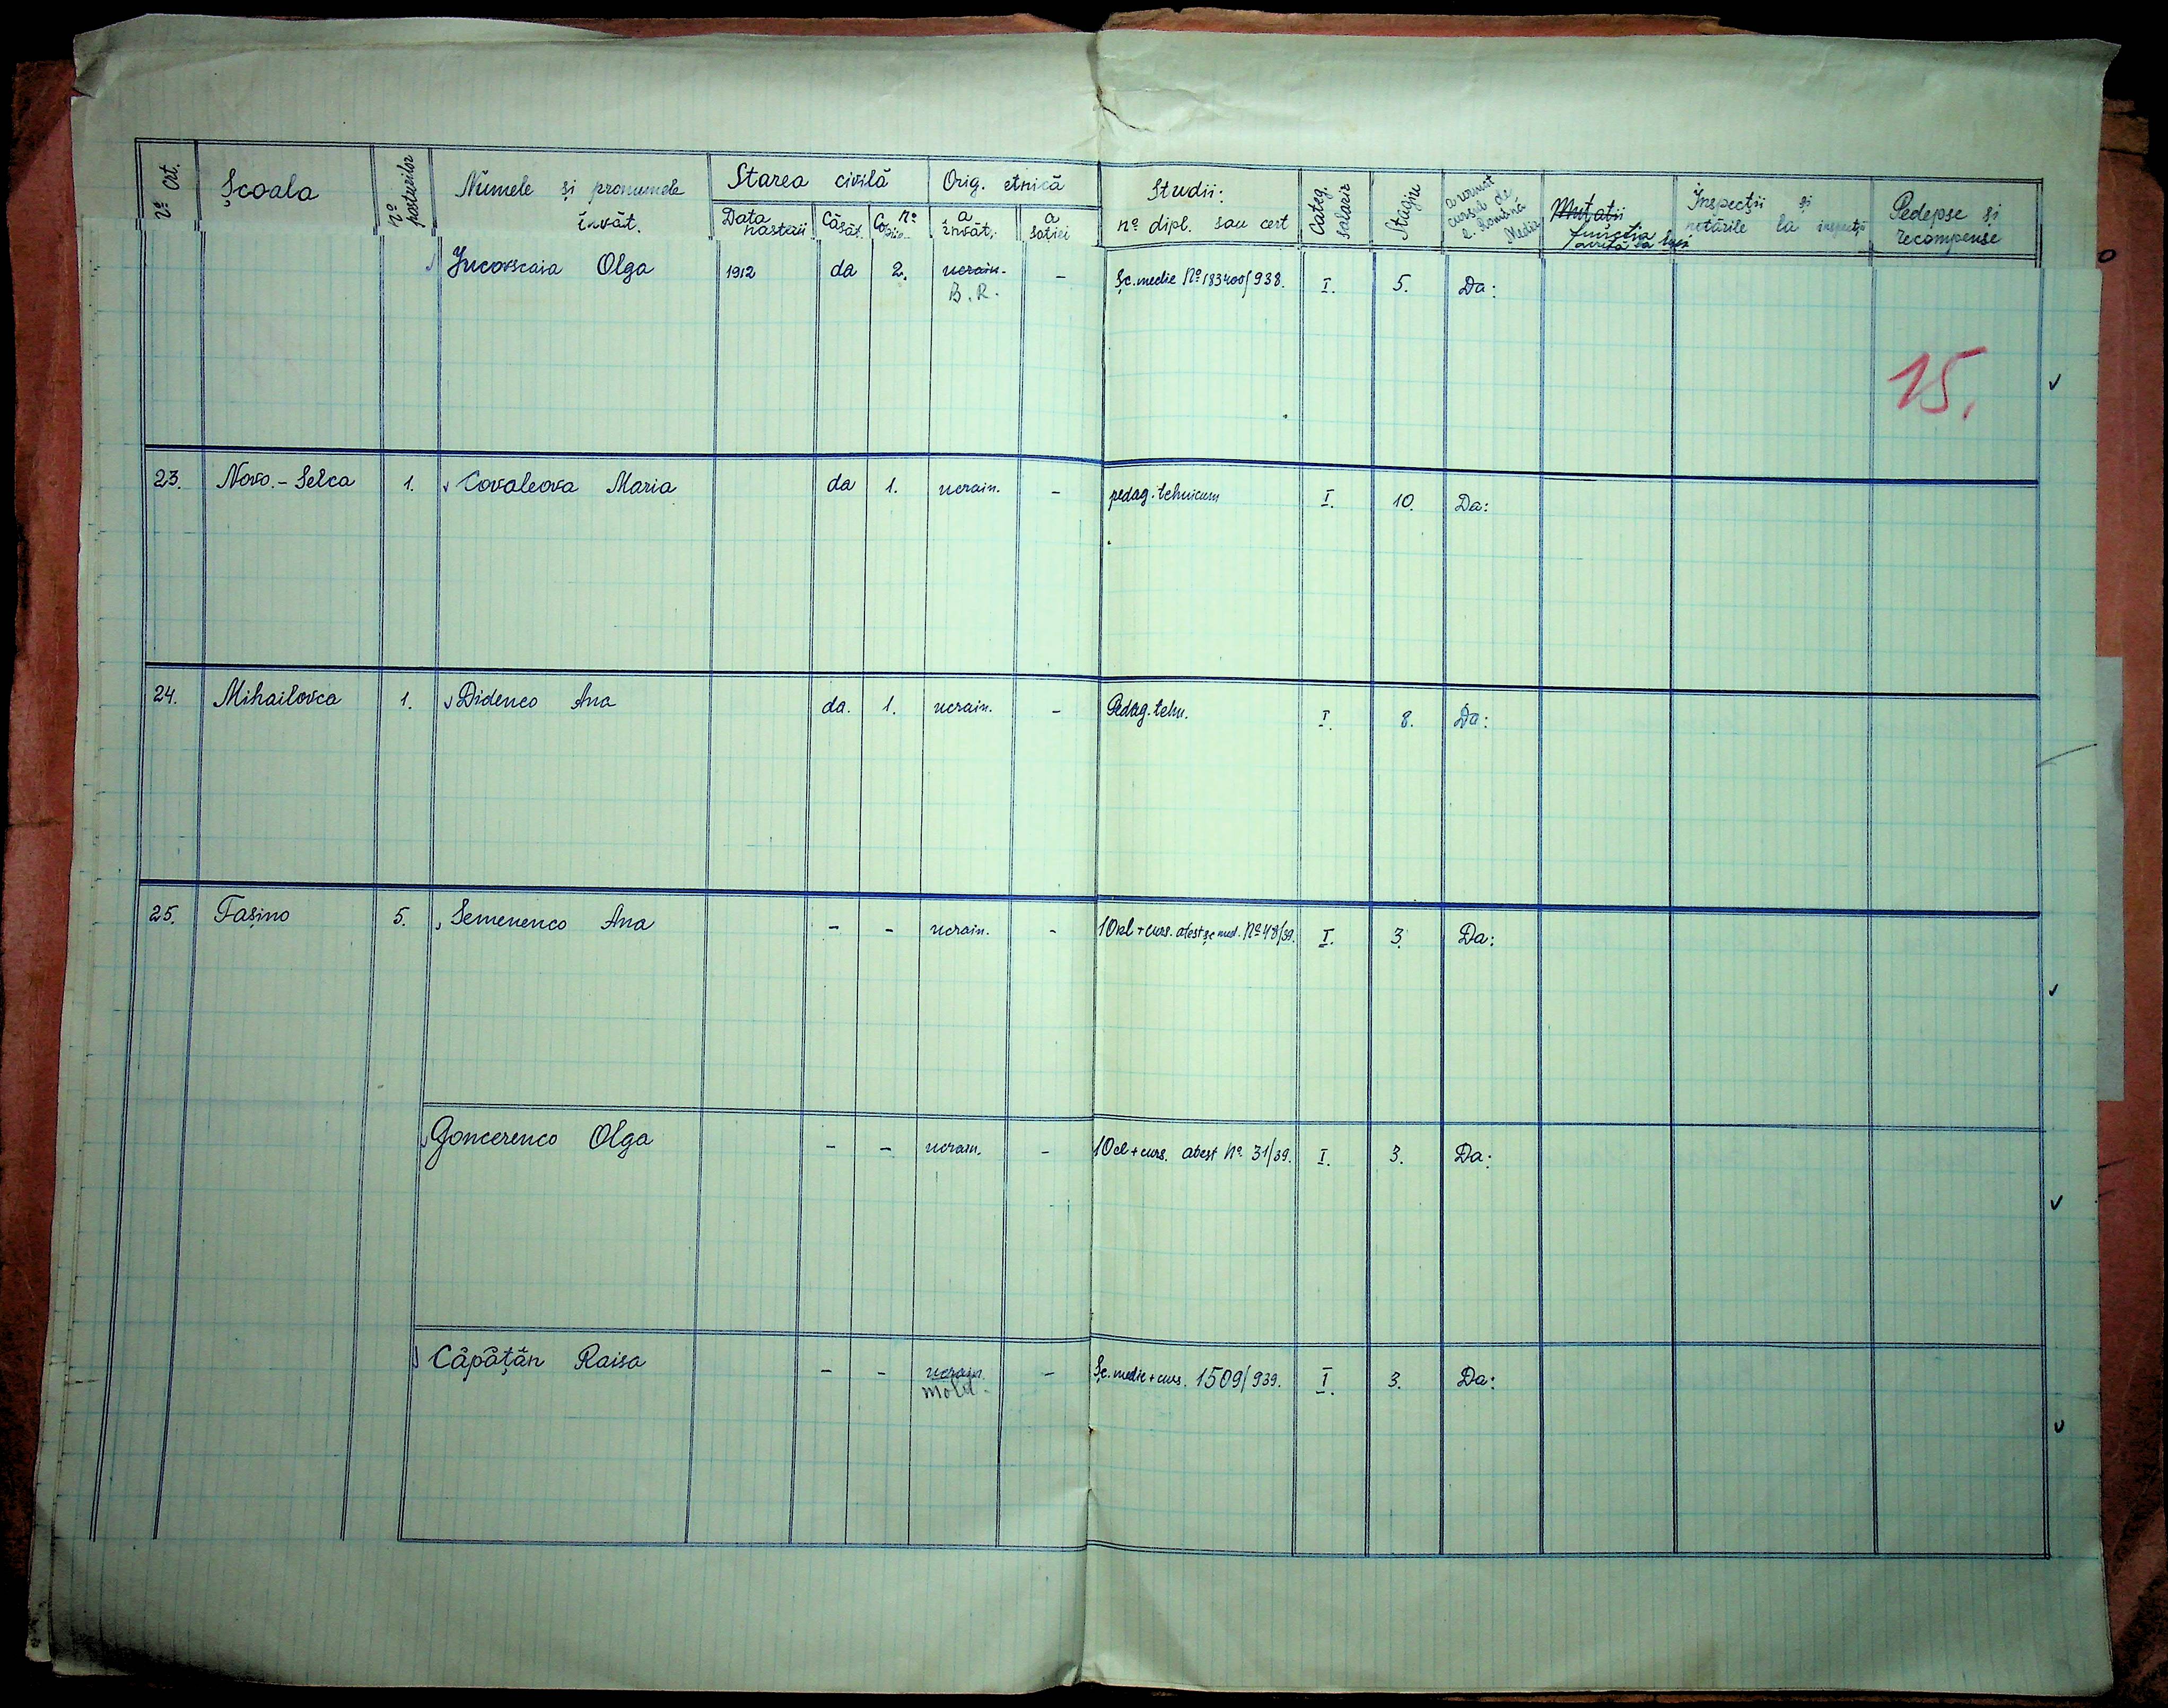 Nº Ort. Școala Nº posturilor Numele și pronumele învăt. Starea civilă Orig. etnică Studii: nº dipl. sau cert Categ. salariz Stagiu a urmat cursul de l. Română Media Mutații funcția Inspecții și notările la inspecții Pedepse și recompense
Data nasterii Căsăt. Nº Copiie a învăt. a soției
Jucovscaia Olga 1912 da 2. ucrain. - Șc. medie Nº 183400/938. I. 5. Da:
B. R.
15.
23. Novo.-Selca 1. Covaleova Maria da 1. ucrain. - pedag. tehnicum I. 10. Da:
24. Mihailovca 1. Didenco Ana da. 1. ucrain. - Pedag. tehn. I. 8. Da:
25. Fașino 5. Semenenco Ana - - ucrain. - 10 cl + curs. atest șc med. Nº 48/39. I. 3. Da:
Goncerenco Olga - - ucrain. - 10 cl + curs. atest Nº 31/39. I. 3. Da:
Căpățăn Raisa - - ucrain. - Șc. medie + curs. 1509/939. I. 3. Da:
mold.